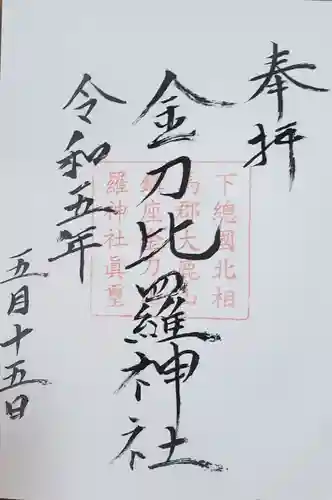 奉拝
金刀比羅神社
令和五年
五月十五日
下總國北相
馬郡大鹿山
鎮座金刀比
羅神社真璽